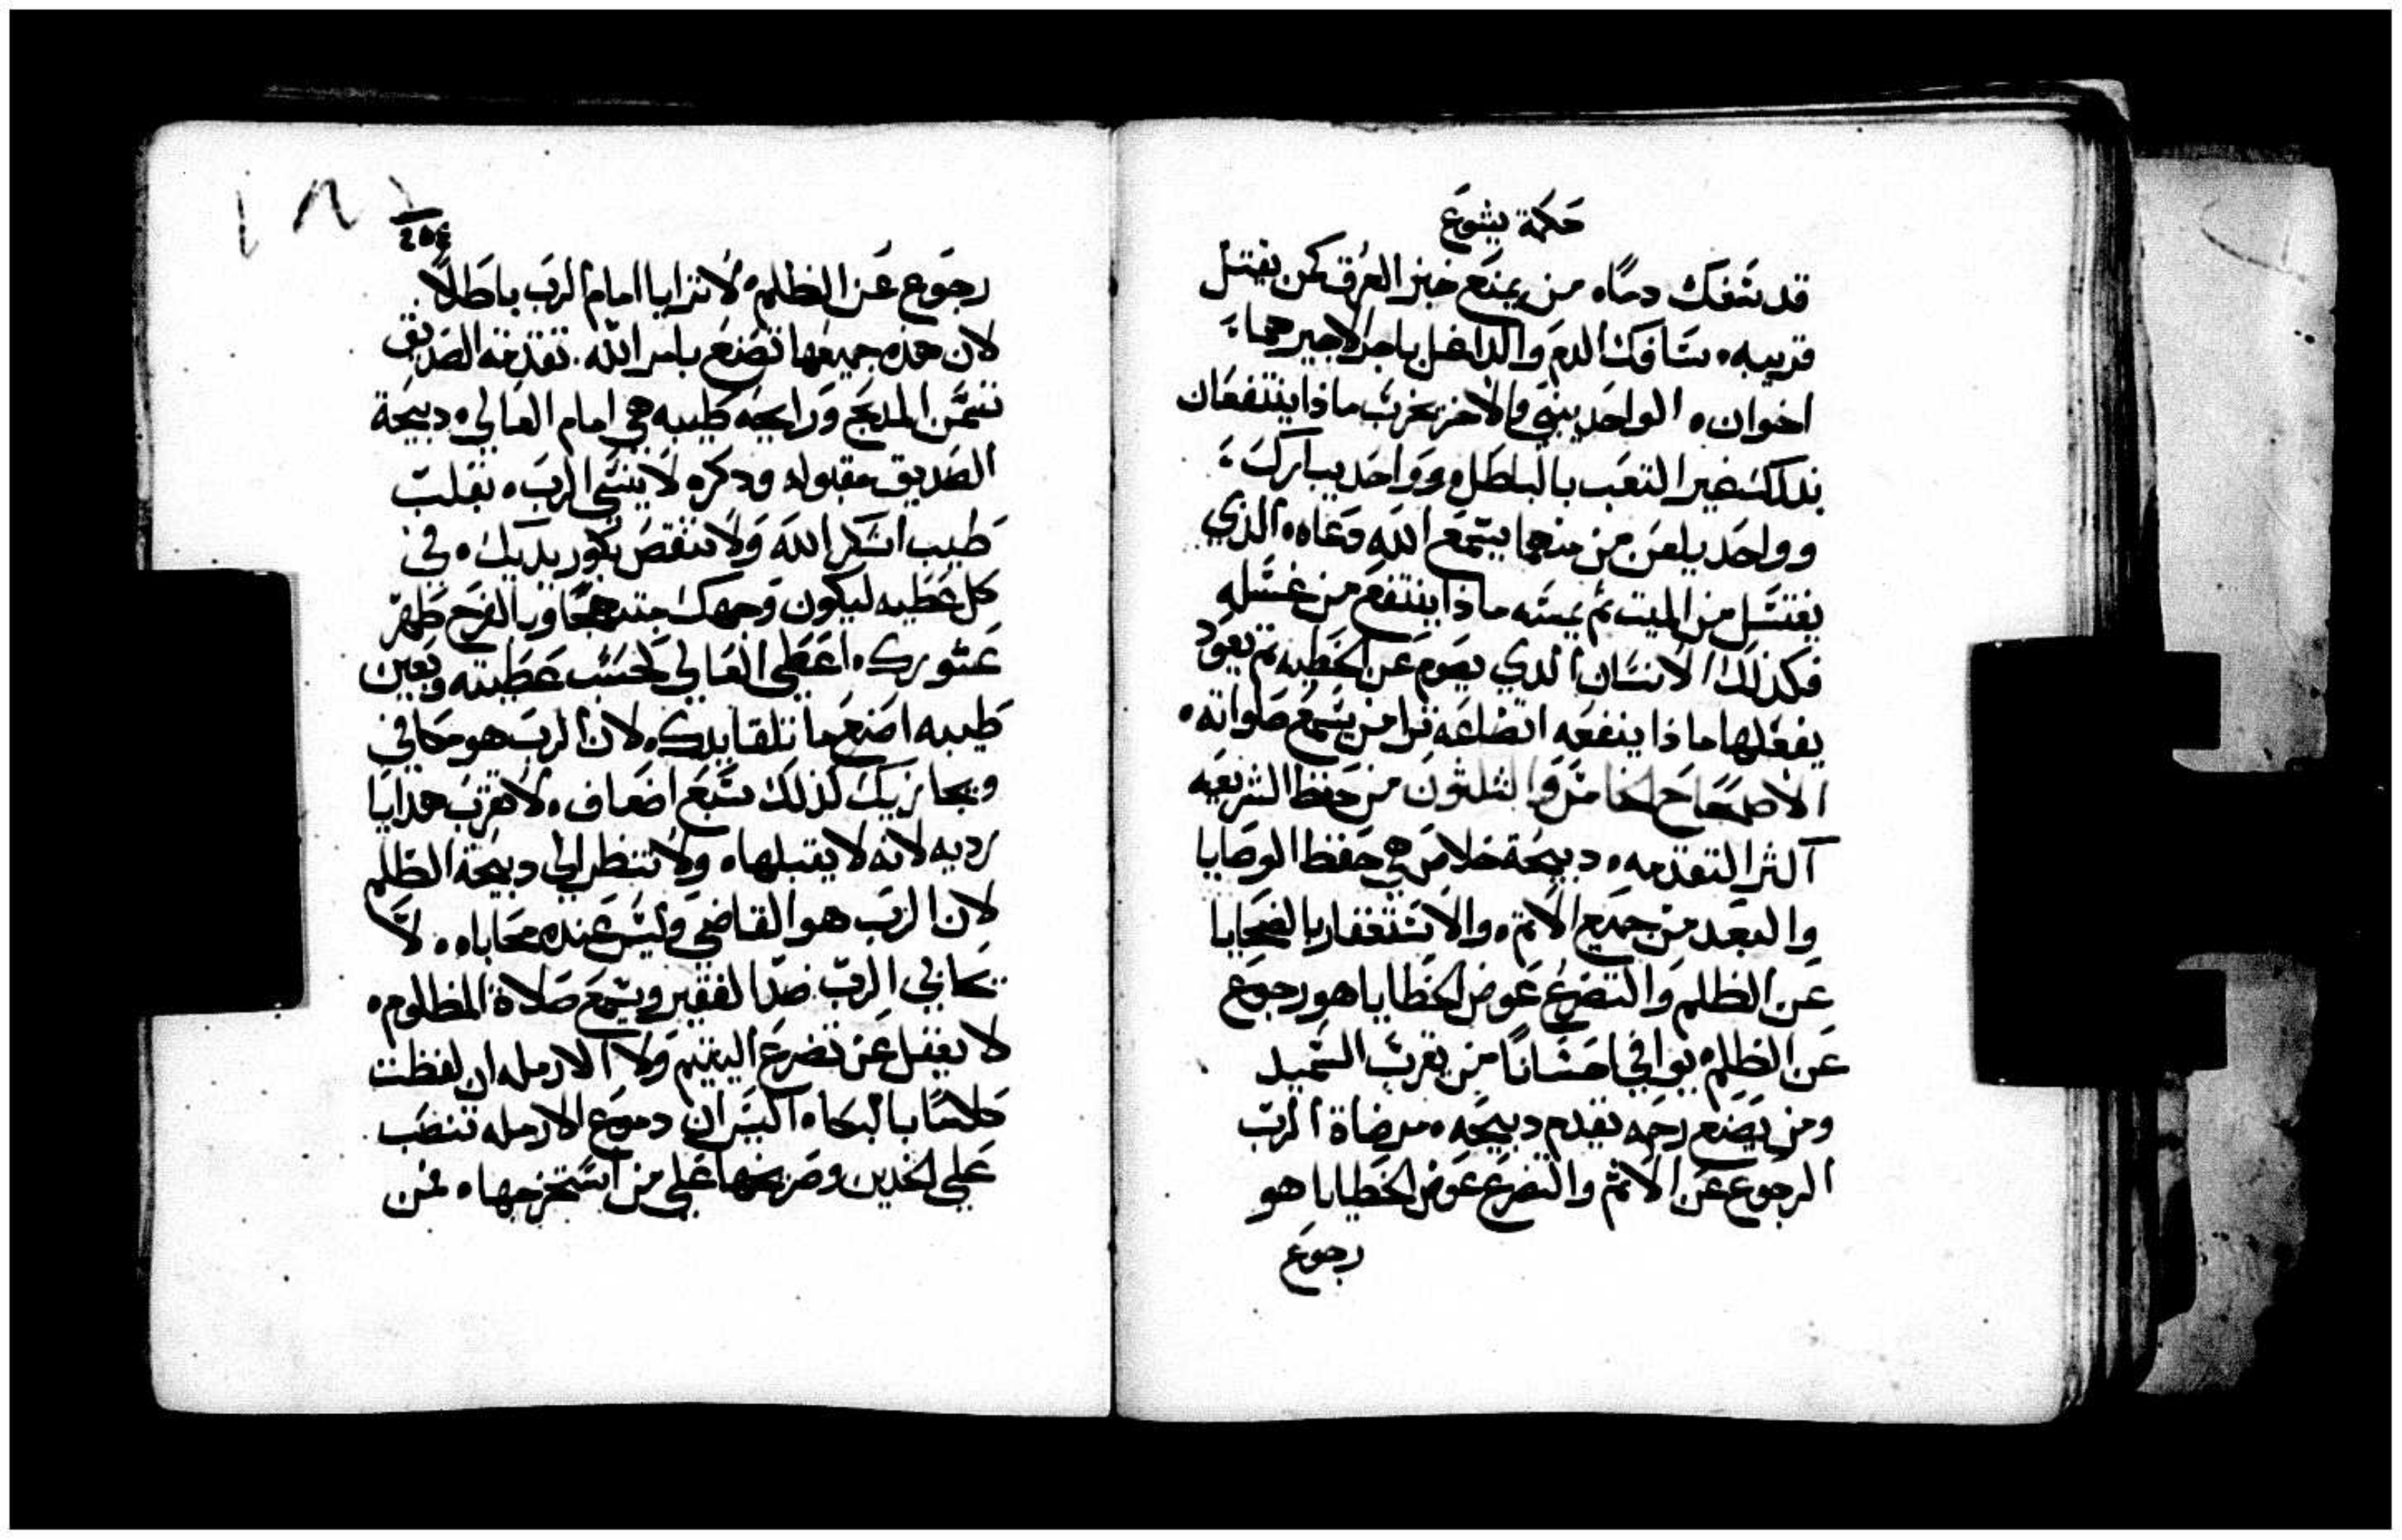 حكمة يشوع
قد سفك دماً. من يمنع خبز العرق كمن يقتل
قريبه. سافك الدم والداغل باجر الاجير هما
اخوان. الواحد يبني والاخر يخرب ماذا ينتفعان
بذلك غير التعب بالباطل. وواحد يبارك
وواحد يلعن من منهما يسمع الله دعاه. الذي
يغتسل من الميت ثم يمسه ماذا ينتفع من غسله
فكذلك الانسان الدي يصوم عن الخطيه ثم يعود
يفعلها ماذا ينفعه اتضاعه ترا من يسمع صلواته.
الاصحاح الخامس والثلثون من حفظ الشريعه
اكثر التقدمه. دبيحة خلاص هي حفظ الوصايا
والبعد من جميع الاثم. والاستغفار بالضحايا
عن الظلم والتضرع عوض الخطايا هو رجوع
عن الظلم. يوافي احساناً من يقرب السميد
ومن يصنع رحمه يقدم دبيحه. مرضاة الرب
الرجوع عن الاثم والتضرع عوض الخطايا هو
رجوع
254
رجوع عن الظلم. لا تترايا امام الرب باطلاً.
لان هذه جميعها تصنع بامر الله. تقدمة الصديق
تسمن المدبح ورايحه طيبه هي امام العالي. دبيحة
الصديق مقبوله ودكره لا ينسى الرب. بقلب
طيب اشكر الله ولا تنقص بكور يديك. في
كل عطيه ليكون وجهك مبتهجاً وبالفرح طهر
عشورك. اعطي العالي كحسب عطيته وبعين
طيبه اصنع ما تلقا يدك. لان الرب هو مكافي
ويجازيك لذلك سبع اضعاف. لا تقرب هدايا
رديه لانه لا يقبلها. ولا تنظر الى دبيحة الظلم
لان الرب هو القاضي وليس عنده محاباه. لا
يحابي الرب ضد الفقير ويسمع صلاة المظلوم.
لا يغفل عن تضرع اليتيم ولا الارمله ان لفظت
كلاماً بالبكاء اليس ان دموع الارمله تنصب
على الخدين وصريخها على من استخرجها. فمن